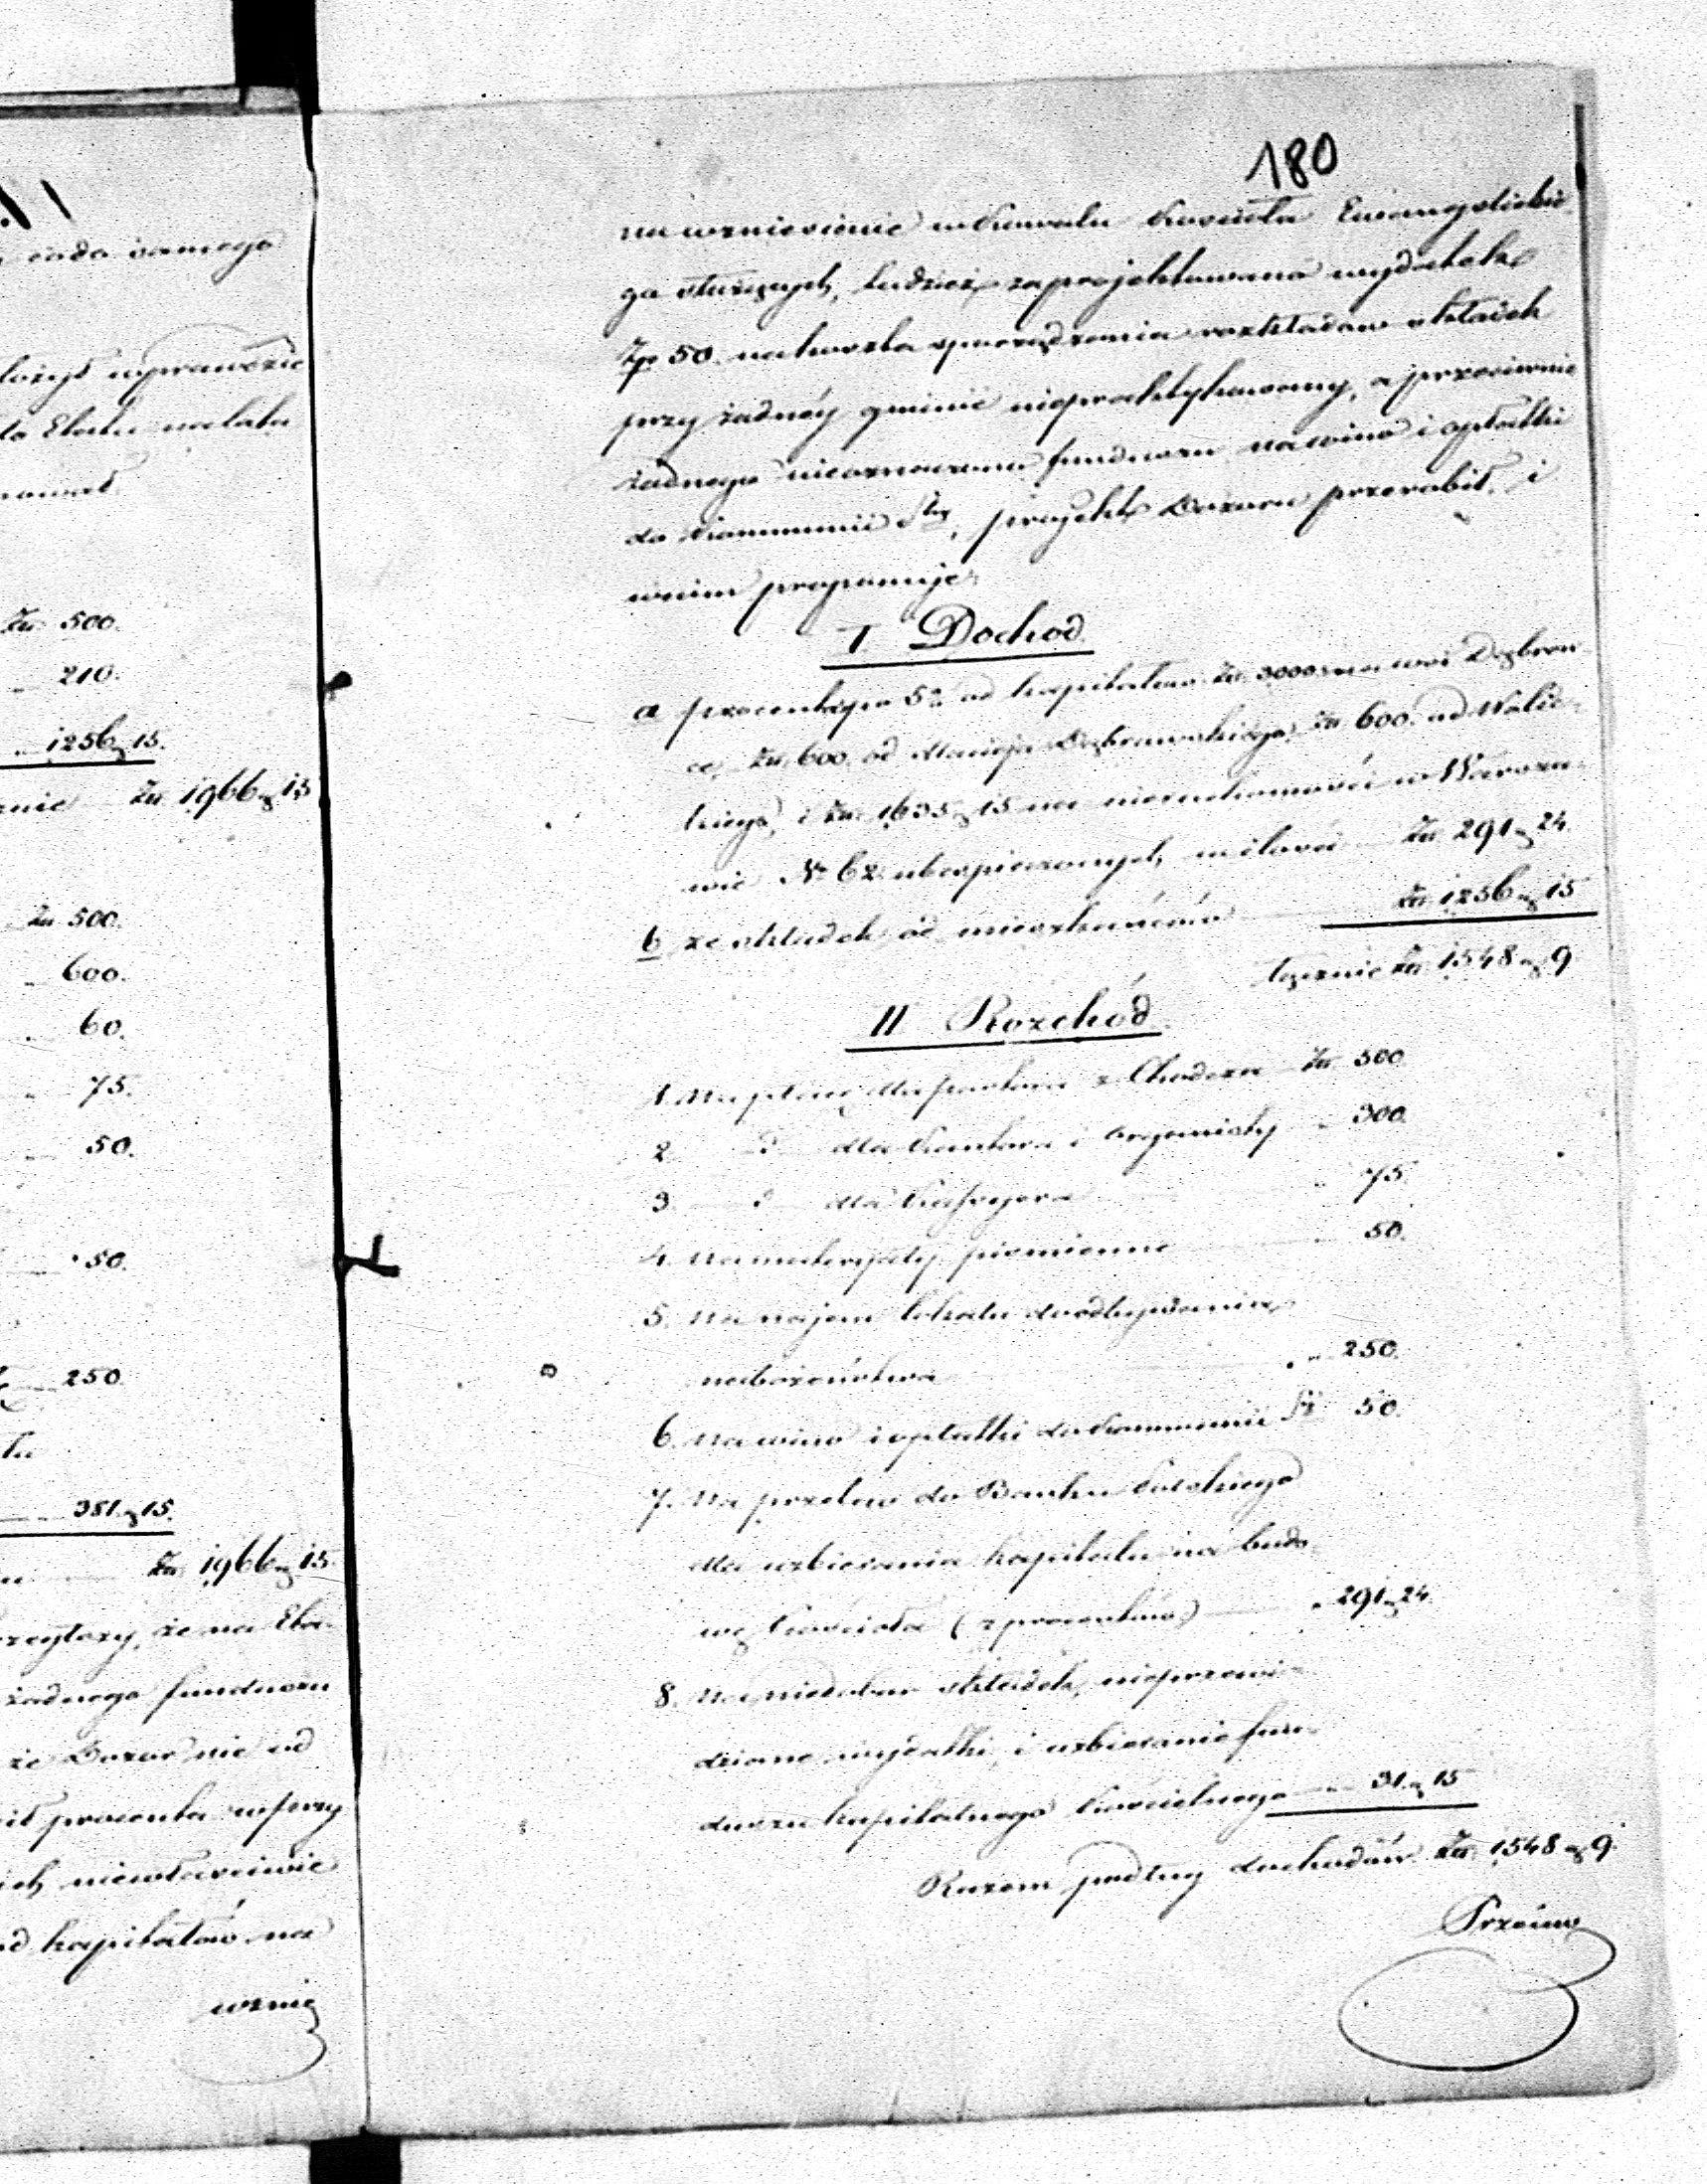 180
na wzniesienie w Kowalu Kościoła Ewangelickie-
go służących, tudzież zaprojektowano wydatek
Zp 50. na koszta sporządzenia rozkładów składek
przy żadnéy gminie niepraktykowany, a przeciwnie
żadnego nieoznaczono funduszu na wino i opłatki
do Kommunii Stey, projekt Dozoru przerobił, i
w nim proponuje:
I Dochod.
a procent po 5% od kapitałów Zł. 3000 na wsi Dąbrow-
ce, Zł. 600 od Macieja Dąbrowskiego, Zł 600. od Walic-
kiego, i Zł. 1635 g 15 na nieruchomości w Warsza-
wie No 62 ubezpieczonych, w ilości Zł 291 g 24.
b ze składek od mieszkańców Zł. 1256 g 15
łącznie Zł. 1548 g 9
II Rozchód.
1. Na płacę dla Pastora z Chodcza Zł 500.
2. d dla Kantora i Organisty " 300.
3. d dla Kassyera " 75.
4. Na materyały piśmienne " 50.
5. Na najem lokalu do odbywania
nabożeństwa " 250.
6. Na wino i opłatki do Kommunii Sty 50.
7. Na przelew do Banku Polskiego
dla uzbierania kapitału na budo-
wę Kościoła (z procentów) " 291 g 24.
8. Na niedobór składek, nieprzewi-
dziane wydatki, i uzbieranie fun-
duszu kapitalnego Kościelnego " 31 g 15
Razem podług dochodów Zł 1548 g 9.
ciała samego
łożył wprawdzie
to Etatu na lata
Zł 500.
" 210.
" 1256 g 15.
Zł 1966 g 15
Zł 500.
" 600.
" 60.
" 75.
" 50.
" 50.
250
381 g 15.
Zł 1966 g 15.
że na Eta-
żadnego funduszu
że Dozór nie od
procenta w przy
niewłaściwie
kapitałów na
wznie